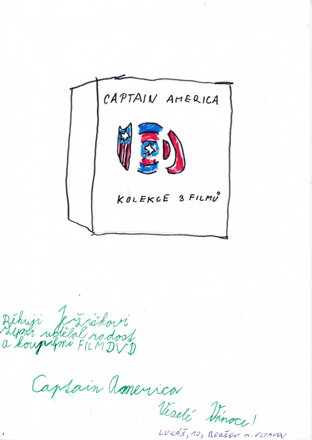 CAPTAIN AMERICA
KOLEKCE 3 FILMŮ
Děkuji Ježíškovi
že mi udělal radost
a koupí mi FILM DVD
Captain America
Veselé Vánoce!
LUKÁŠ, 10, BORŠOV n. VLTAVOU